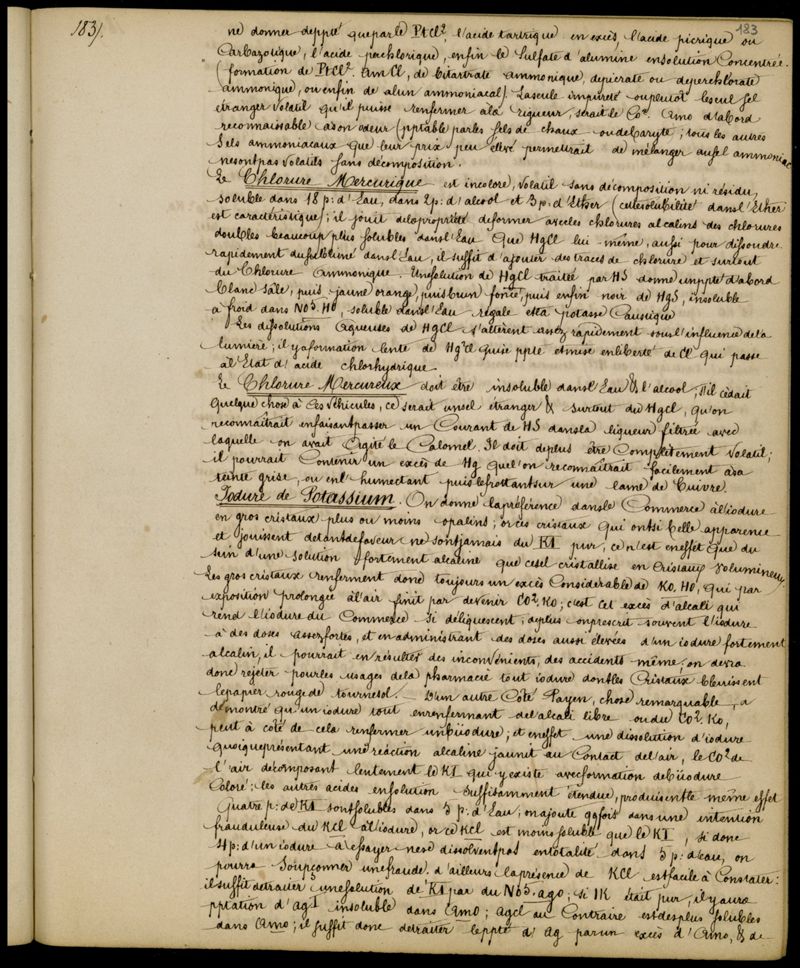 183).
183
ne donner de ppté que par le PtCl², l'acide tartrique en excès, l'acide picrique ou
Carbazotique, l'acide perchlorique, enfin le Sulfate d'alumine en solution Concentrée.
(formation de PtCl². AmCl, de bitartrate ammonique, de picrate ou de perchlorate
ammonique, ou enfin de alun ammoniacal). La seule impureté ou plutôt le seul sel
étranger volatil qu'il puisse renfermer à la rigueur, serait le Co². Amo d'abord
reconnaissable à son odeur (pptable par les sels de chaux ou de baryte; tous les autres
Sels ammoniacaux que leur prix peu élevé permettrait de mélanger au sel ammoniac
ne sont pas volatils sans décomposition.
Le Chlorure Mercurique est incolore, volatil sans décomposition ni résidu,
Soluble dans 18 p: d'Eau, dans 2 p: d'alcool et 3 p. d'Ether (cette solubilité dans l'Ether
est caractéristique); il jouit de la propriété de former avec les chlorures alcalins des chlorures
doubles beaucoup plus solubles dans l'Eau que HgCl lui-même, aussi pour dissoudre
rapidement du sublimé dans l'eau, il suffit d'ajouter des traces de chlorure et surtout
du Chlorure Ammonique. Une solution de HgCl traitée par HS donne un ppté d'abord
blanc sâle, puis jaune orange, puis brun foncé, puis enfin noir de HgS, insoluble
à froid dans NO⁵. HO, soluble dans l'Eau régale et la potasse Caustique
Les dissolutions aqueuses de HgCl s'altèrent assez rapidement sous l'influence de la
lumière; il y a formation lente de Hg²Cl qui se ppte et mise en liberté de Cl qui passe
à l'Etat d'acide chlorhydrique.
Le Chlorure Mercureux doit être insoluble dans l'Eau & l'alcool; s'il cédait
quelque chose à ces véhicules, ce serait un sel étranger & surtout du HgCl, qu'on
reconnaîtrait en faisant passer un Courant de HS dans la liqueur filtrée avec
laquelle on avait agité le Calomel. Il doit de plus être Complètement volatil;
il pourrait Contenir un excès de Hg que l'on reconnaîtrait facilement à sa
teinte grise, ou en l'humectant puis le frottant sur une lame de Cuivre.
Iodure de Potassium. On donne la préférence dans le Commerce à l'iodure
en gros cristaux plus ou moins opalins; or ces cristaux qui ont si belle apparence
et jouissent de tant de faveur ne sont jamais du KI pur, ce n'est en effet que du
sein d'une solution fortement alcaline que ce sel cristallise en Cristaux volumineux
Les gros cristaux renferment donc toujours un excès Considérable de KO, HO, qui par
exposition prolongée à l'air finit par devenir CO², KO; c'est cet excès d'alcali qui
rend l'iodure du Commerce si déliquescent; de plus on prescrit souvent l'iodure
à des doses assez fortes, et en administrant des doses aussi élevées d'un iodure fortement
alcalin, il pourrait en résulter des inconvénients, des accidents même, on devra
donc rejeter pour les usages de la pharmacie tout iodure dont les Cristaux bleuissent
le papier rouge de tournesol. — D'un autre Côté Payen, chose remarquable, a
démontré qu'un iodure tout en renfermant de l'alcali libre ou du CO². KO,
peut à côté de cela renfermer un biiodure; et en effet une dissolution d'iodure
quoique présentant une réaction alcaline jaunit au Contact de l'air, le CO² de
l'air décomposant lentement le KI qui y existe avec formation de biiodure
Coloré: les autres acides en solution suffisamment étendue, produisent le même effet
Quatre p: de KI sont solubles dans 3 p: d'Eau, on ajoute qqfois dans une intention
frauduleuse du KCl à l'iodure, or ce KCl est moins soluble que le KI, si donc
4 p: d'un iodure à essayer ne se dissolvent pas en totalité dans 3 p: d'eau, on
pourra Soupçonner une fraude. d'ailleurs la présence de KCl est facile à Constater:
il suffit de traiter une solution de KI par du NO⁵. ago; si IK était pur, il y aura
pptation d'agI insoluble dans Amo; agcl au Contraire est des plus solubles
dans Amo; il suffit donc de traiter le ppté d'ag par un excès d'Amo, & de